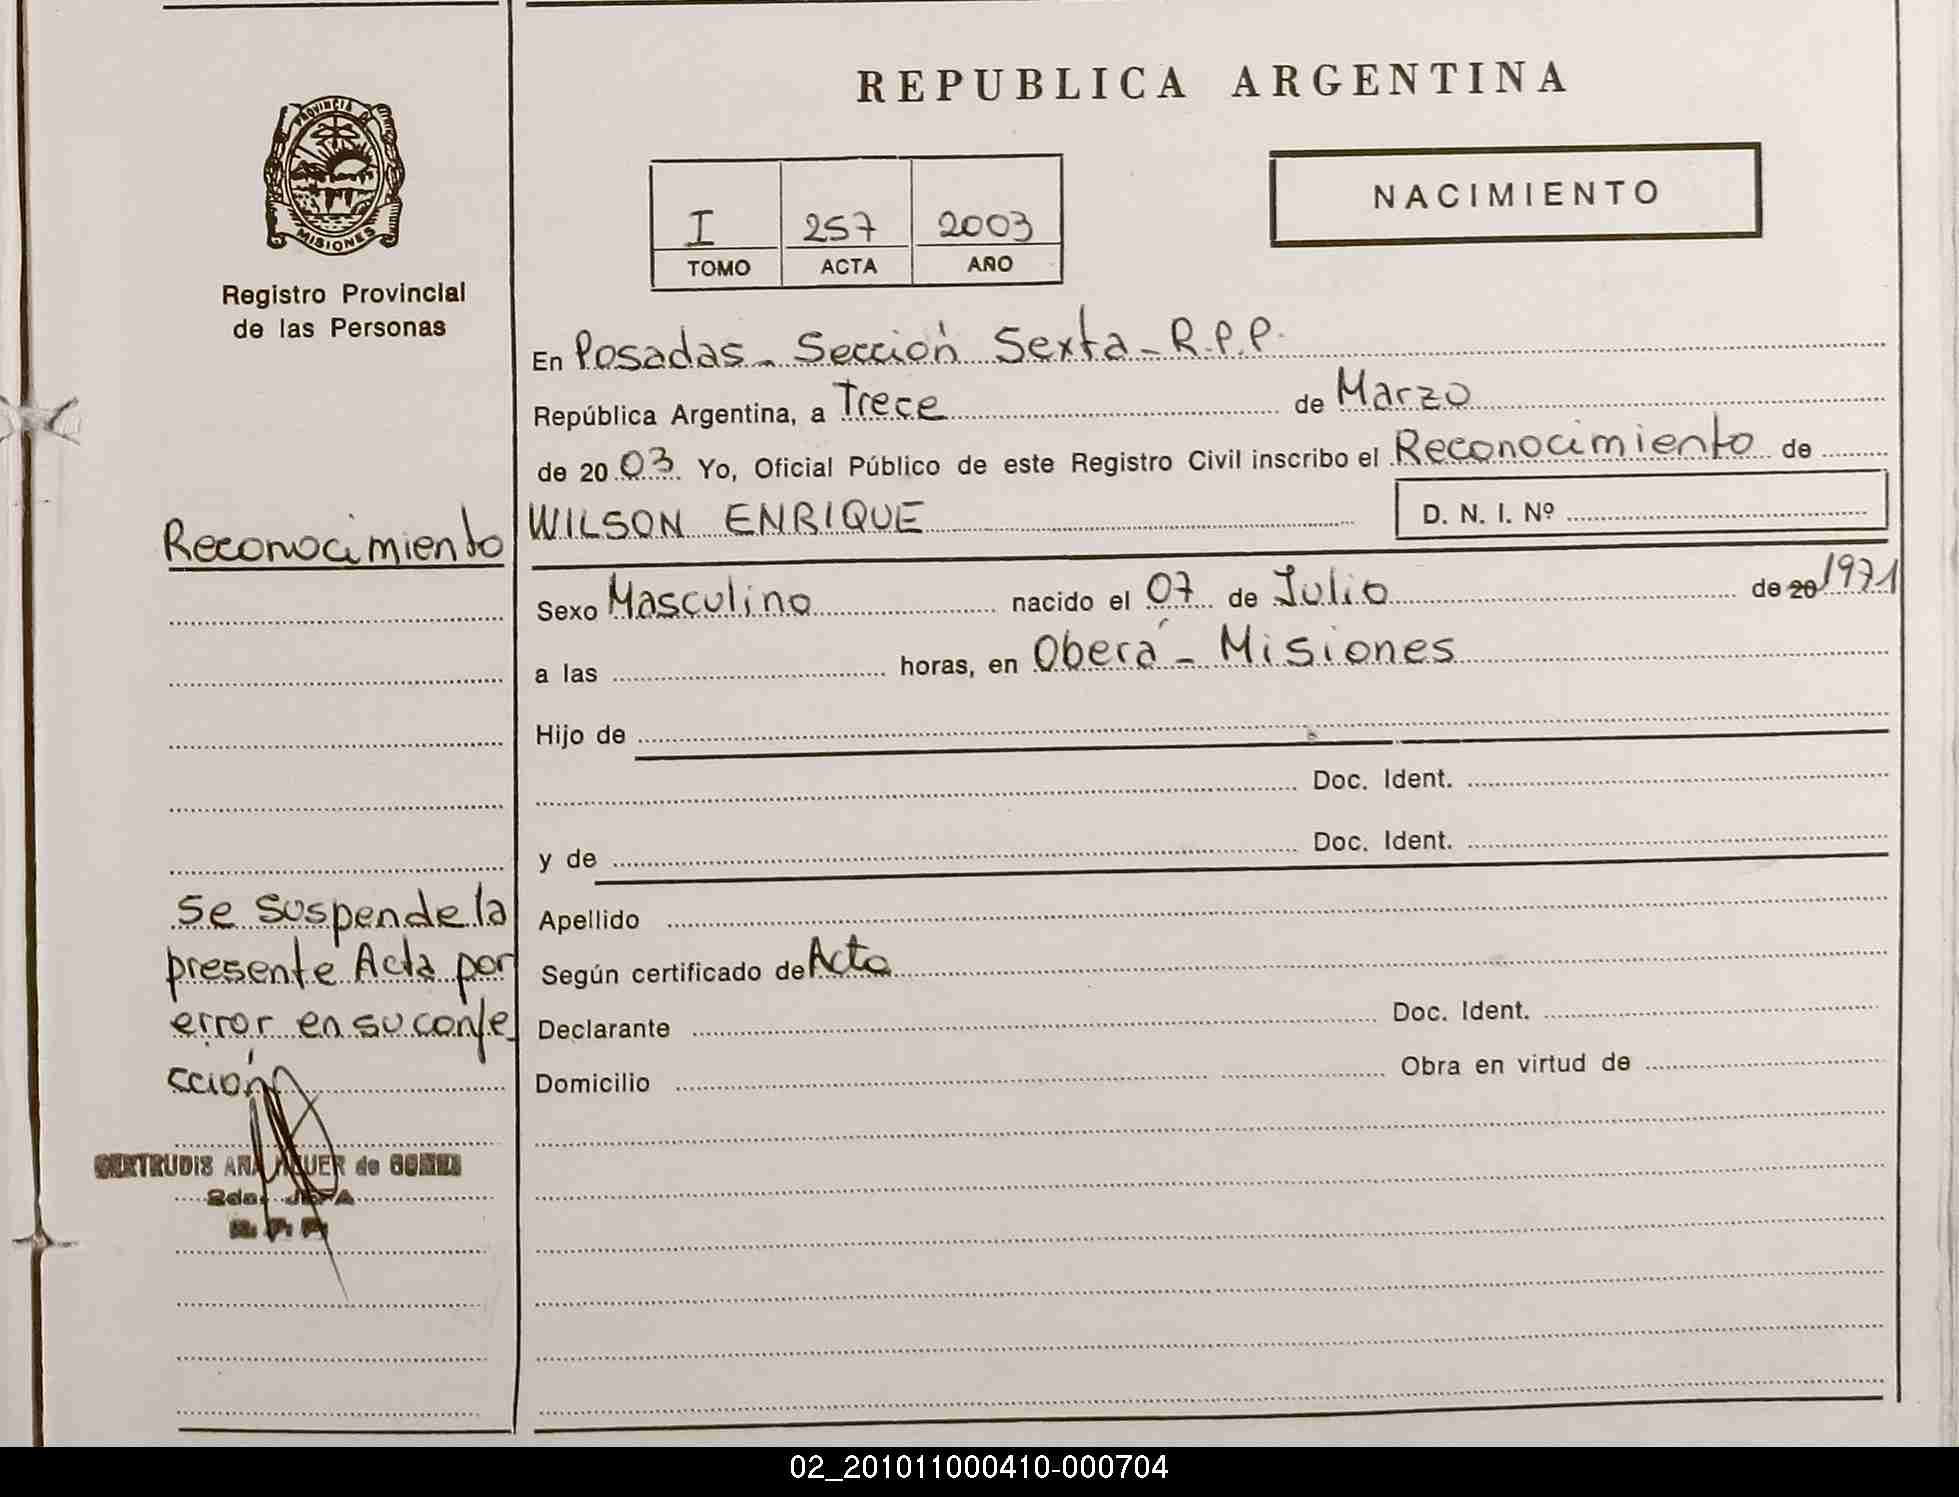 REPUBLICA ARGENTINA
PROVINCIA DE
MISIONES
Registro Provincial
de las Personas
I 257 2003
TOMO ACTA AÑO
NACIMIENTO
En Posadas - Sección Sexta - R.P.P.
República Argentina, a Trece de Marzo
de 2003 Yo, Oficial Público de este Registro Civil inscribo el Reconocimiento de
WILSON ENRIQUE D. N. I. Nº
Sexo Masculino nacido el 07 de Julio de 20 1971
a las horas, en Oberá - Misiones
Hijo de
Doc. Ident.
y de Doc. Ident.
Apellido
Según certificado de Acta
Declarante Doc. Ident.
Domicilio Obra en virtud de
Reconocimiento
Se suspende la
presente Acta por
error en su confe
cción
GERTRUDIS ANA de
2da. JEFA
R. P. P.
02_201011000410-000704